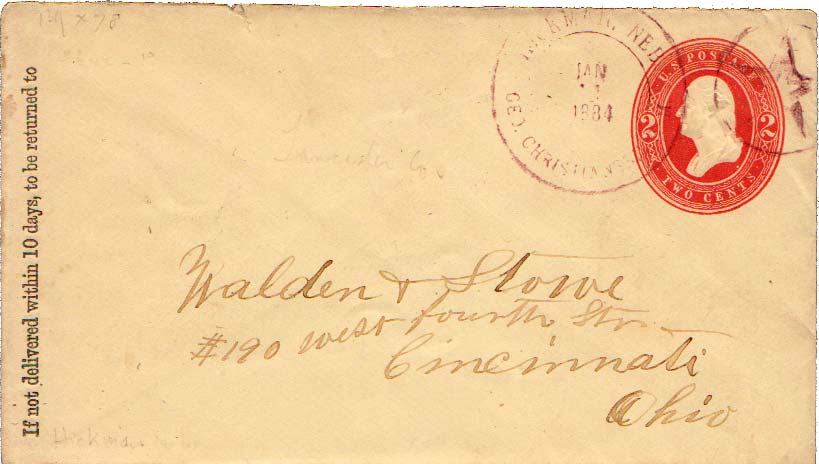 If not delivered within 10 days, to be returned to
NEB
JAN
1884
GEO. CHRISTIANS
U.S. POSTAGE
2 2
TWO CENTS
Lancaster Co
Walden & Stowe
#190 West Fourth Str
Cincinnati
Ohio
Hickman